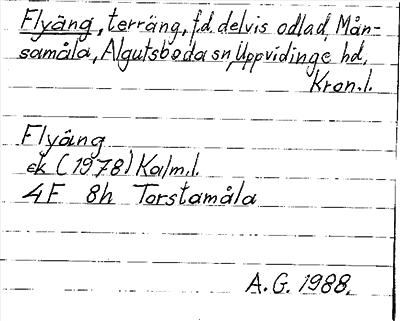 Flyäng, terräng, f.d. delvis odlad, Mån-
samåla, Algutsboda sn, Uppvidinge hd,
Kron.l.
Flyäng
ek (1978) Kalm.l.
4F 8h Torstamåla
A.G. 1988.